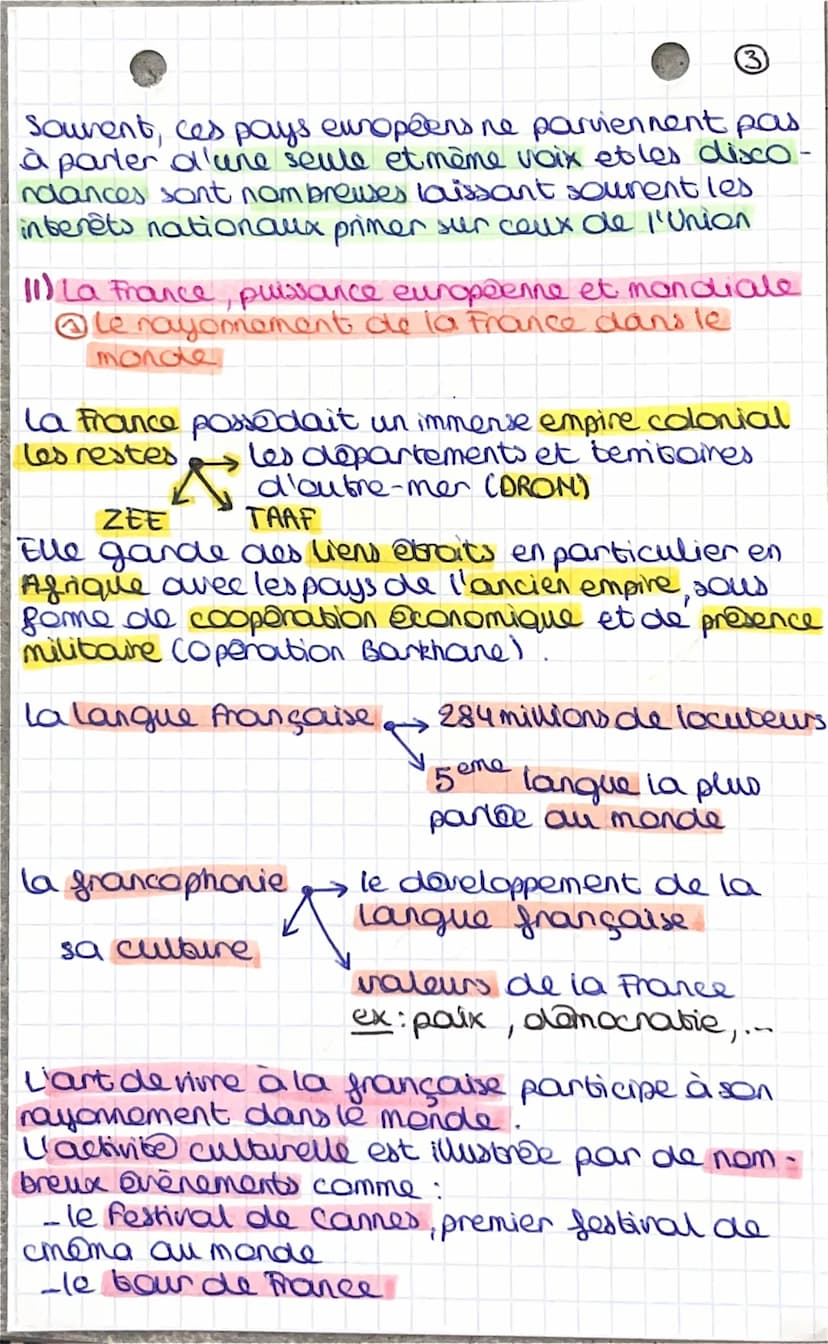 3
Souvent, ces pays européens ne parviennent pas
à parler d'une seule et même voix et les disco-
rdances sont nombreuses laissant souvent les
interêts nationaux primer sur ceux de l'Union
II) La France, puissance européenne et mondiale
① Le rayonnement de la France dans le
monde
La France possédait un immense empire colonial
Les restes → les départements et territoires
d'outre-mer (DROM)
ZEE TAAF
Elle garde des liens étroits en particulier en
Afrique avec les pays de l'ancien empire, sous
forme de coopération économique et de présence
militaire (opération Barkhane).
La langue française → 284 millions de locuteurs
5eme langue la plus
parlée au monde
La francophonie → le développement de la
langue française
sa culture
valeurs de la France
ex : paix, démocratie,...
L'art de vivre à la française participe à son
rayonnement dans le monde.
L'activité culturelle est illustrée par de nom-
breux évènements comme :
- le Festival de Cannes, premier festival de
cinéma au monde
- le tour de France